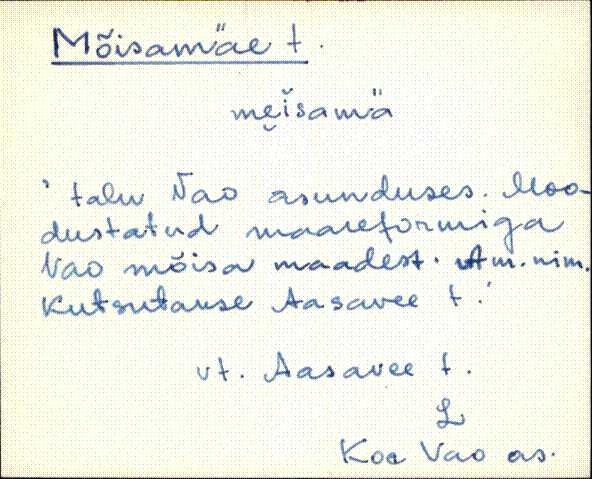 Mõisamäe t.
mẹĭsamä
' talu Vao asunduses. Moo-
dustatud maareformiga
Vao mõisa maadest. Am. nim.
Kutsutakse Aasavee t.'
vt. Aasavee t.
L
Koe Vao as.